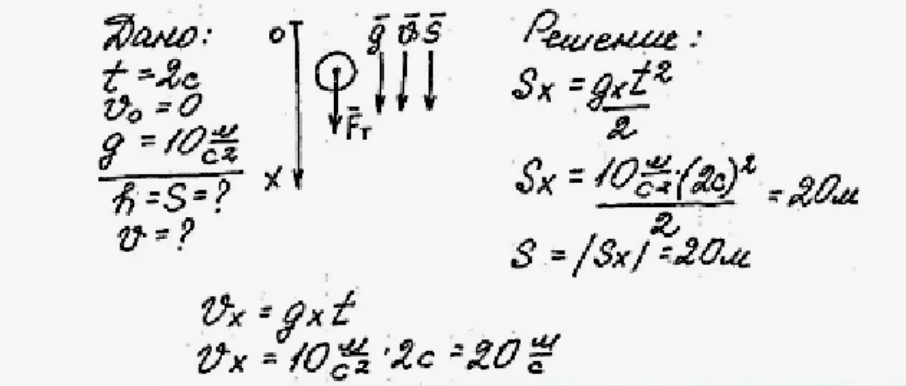 Дано:
t = 2с
v₀ = 0
g = 10 м/с²
h = S = ?
v = ?
0
X
g̅ v̅ S̅
F̅т
Решение:
Sx = gxt²/2
Sx = 10 м/с² · (2с)²/2 = 20м
S = |Sx| = 20м
vx = gxt
vx = 10 м/с² · 2с = 20 м/с